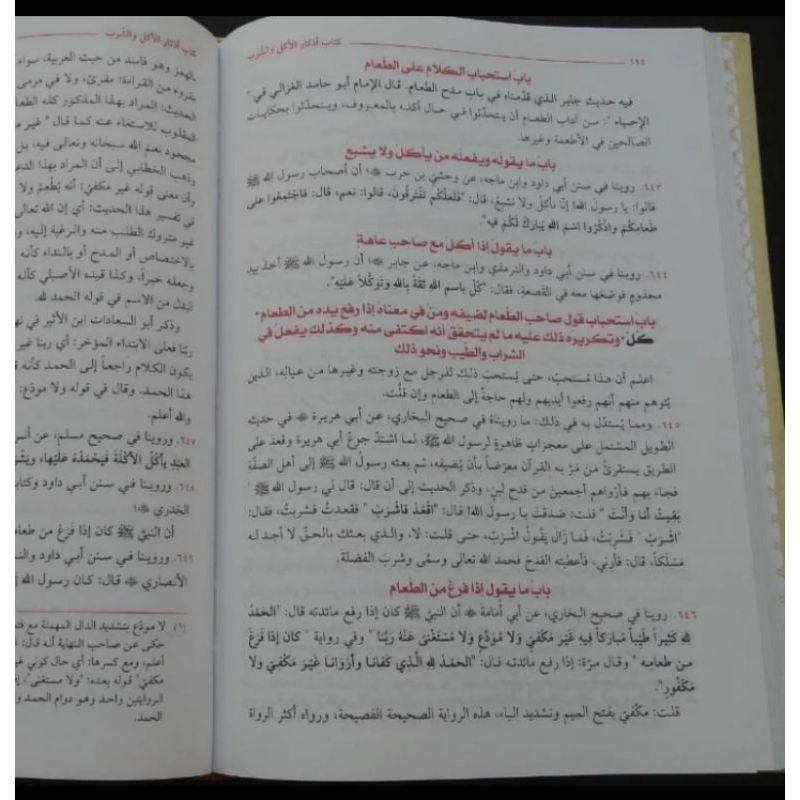 ١٩٤
كتاب أذكار الأكل والشرب
باب استحباب الكلام على الطعام
فيه حديث جابر الذي قدّمناه في باب مدح الطعام. قال الإمام أبو حامد الغزالي في "
الإحياء ": مـن آداب الطعـام أن يتحدّثوا فـي حـال أكلـه بالمعـروف، ويتحدّثوا بحكايـات
الصالحين في الأطعمة وغيرها.
باب ما يقولُه ويفعلُه من يأكلُ ولا يشبع
٦٤٣. روينا في سنن أبي داود وابن ماجه، عن وحشيّ بن حرب ﷺ؛ أن أصحاب رسول الله ﷺ
قالوا: يا رسولَ الله! إنَّا نأكلُ ولا نشبعُ، قال: "فَلَعَلَّكُم تَفْتَرِقُونَ، قالوا: نعم، قال: فاجْتَمِعُوا على
طَعامِكُمْ واذْكُرُوا اسْمَ اللهِ يُبارَكْ لَكُمْ فيه".
باب ما يقول إذا أكل مع صاحب عاهة
٦٤٤. روينا في سنن أبي داود والترمذي وابن ماجه، عن جابر ﷺ؛ أن رسول الله ﷺ أخذَ بيدِ
مجذومٍ فوضَعَها معه في القَصعةِ، فقال: "كُلْ باسمِ اللهِ ثِقَةً بِاللهِ وَتَوَكُّلاً عَلَيْهِ".
باب استحباب قول صاحب الطعام لضيفه ومن في معناه إذا رفع يده من الطعام "
كُلْ" وتكريره ذلك عليه ما لم يتحقق أنه اكتفى منه وكذلك يفعل في
الشراب والطيب ونحو ذلك
اعلم أن هذا مُستحبٌّ، حتى يُستحبّ ذلك للرجل مع زوجته وغيرها من عياله، الذين
يُتوهم منهم أنهم رفعوا أيديهم ولهم حاجةٌ إلى الطعام وإن قلّت.
٦٤٥. ومما يُستدل به في ذلك: ما رويناهُ في صحيح البخاري، عن أبي هريرة ﷺ في حديثه
الطويل المشتمل على معجزاتٍ ظاهرةٍ لرسول الله ﷺ، لما اشتدّ جوعُ أبي هريرة وقعدَ على
الطريق يستقرئُ مَن مَرَّ به القرآن معرّضاً بأن يُضيفه، ثم بعثه رسولُ الله ﷺ إلى أهل الصُفّة
فجاءَ بهم فأرْواهم أجمعينَ من قدح لبنٍ، وذكر الحديث إلى أن قال: قال لي رسول الله ﷺ "
بَقِيتُ أنا وأنْتَ " قلت: صدقتَ يا رسولَ الله! قال: "اقْعُدْ فاشْرَبْ " فقعدتُ فشربتُ، فقال:
"اشْرَبْ " فَشَرِبْتُ، فَما زَالَ يَقُولُ اشْرَبْ، حتى قلت: لا، والـذي بعثـك بالحـقّ لا أجـد لـه
مَسْلَكاً، قال: فأَرِني، فأعطيته القدحَ فحمد الله تعالى وسمَّى وشربَ الفضلة.
باب ما يقول إذا فرغ من الطعام
٦٤٦. روينا في صحيح البخاري، عن أبي أُمامةَ ﷺ أن النبيّ ﷺ كان إذا رفع مائدته قال: "الحَمْدُ
للهِ كَثِيراً طَيِّباً مُبارَكاً فِيهِ غَيْرَ مَكْفيٍّ وَلا مُوَدَّعٍ وَلا مُسْتَغْنىً عَنْهُ رَبَّنا " وفي رواية " كان إذا فَرَغَ
مـن طعامه " وقال مرّة: إذا رفع مائدته قال: "الحَمْدُ للهِ الَّذي كَفانا وأرْوَانا غَيْرَ مَكْفيٍّ ولا
مَكْفُورٍ".
قلت: مكْفيّ بفتح الميم وتشديد الياء، هذه الرواية الصحيحة الفصيحة، ورواه أكثر الرواة
كتاب أذكار الأكل والشرب
بالهمز وهو فاسد من حيث العربية، سواء
مقروء من القراءة: مقرئ، ولا في مرمى
الحديث: المراد بهذا المذكور كله الطعام
المقلوب للاستغناء عنه كما قال " غير م
مجحود نِعم الله سبحانه وتعالى فيه، بل
وذهب الخطابي إلى أن المراد بهذا الدعا
وأن معنى قوله غير مكفيّ: أنه يُطْعِمُ ولا
في تفسير هذا الحديث: أي إن الله تعالى
غير متروك الطلب منه والرغبة إليه، و
بالاختصاص أو المدح أو بالنداء كأنه
وجعله خبراً، وكذا قيده الأصيلي كأنه
لبدل من الاسم في قوله الحمد لله.
وذكر أبو السعادات ابن الأثير في نها
ربّنا فعلى الابتداء المؤخر: أي ربنا غير
يكون الكلام راجعاً إلى الحمد كأنه
هذا الحمد. وقال في قوله ولا مودَّع:
والله أعلم.
٦٤٧. وروينا في صحيح مسلم، عن أنس
العَبْدِ يأكُلُ الأكْلَةَ فَيَحْمَدُهُ عَلَيْها، ويَشْرَ
٦٤٨. وروينا في سنن أبي داود وكتاب
الخدري ﷺ؛
أن النبيّ ﷺ كان إذا فَرَغَ من طعام
٦٤٩. وروينا في سنن أبي داود والنسا
الأنصاري ﷺ قال: كان رسول الله
(٢) لا مودَّع بتشديد الدال المهملة مع فتح
حكى عن صاحب النهاية أنه قال:
أعلم، ومع كسرها: أي حال كوني غير
مكفيّ" قوله بعده: "ولا مستغنى"، إ
الروايتين واحد وهو دوام الحمد و
الحمد.